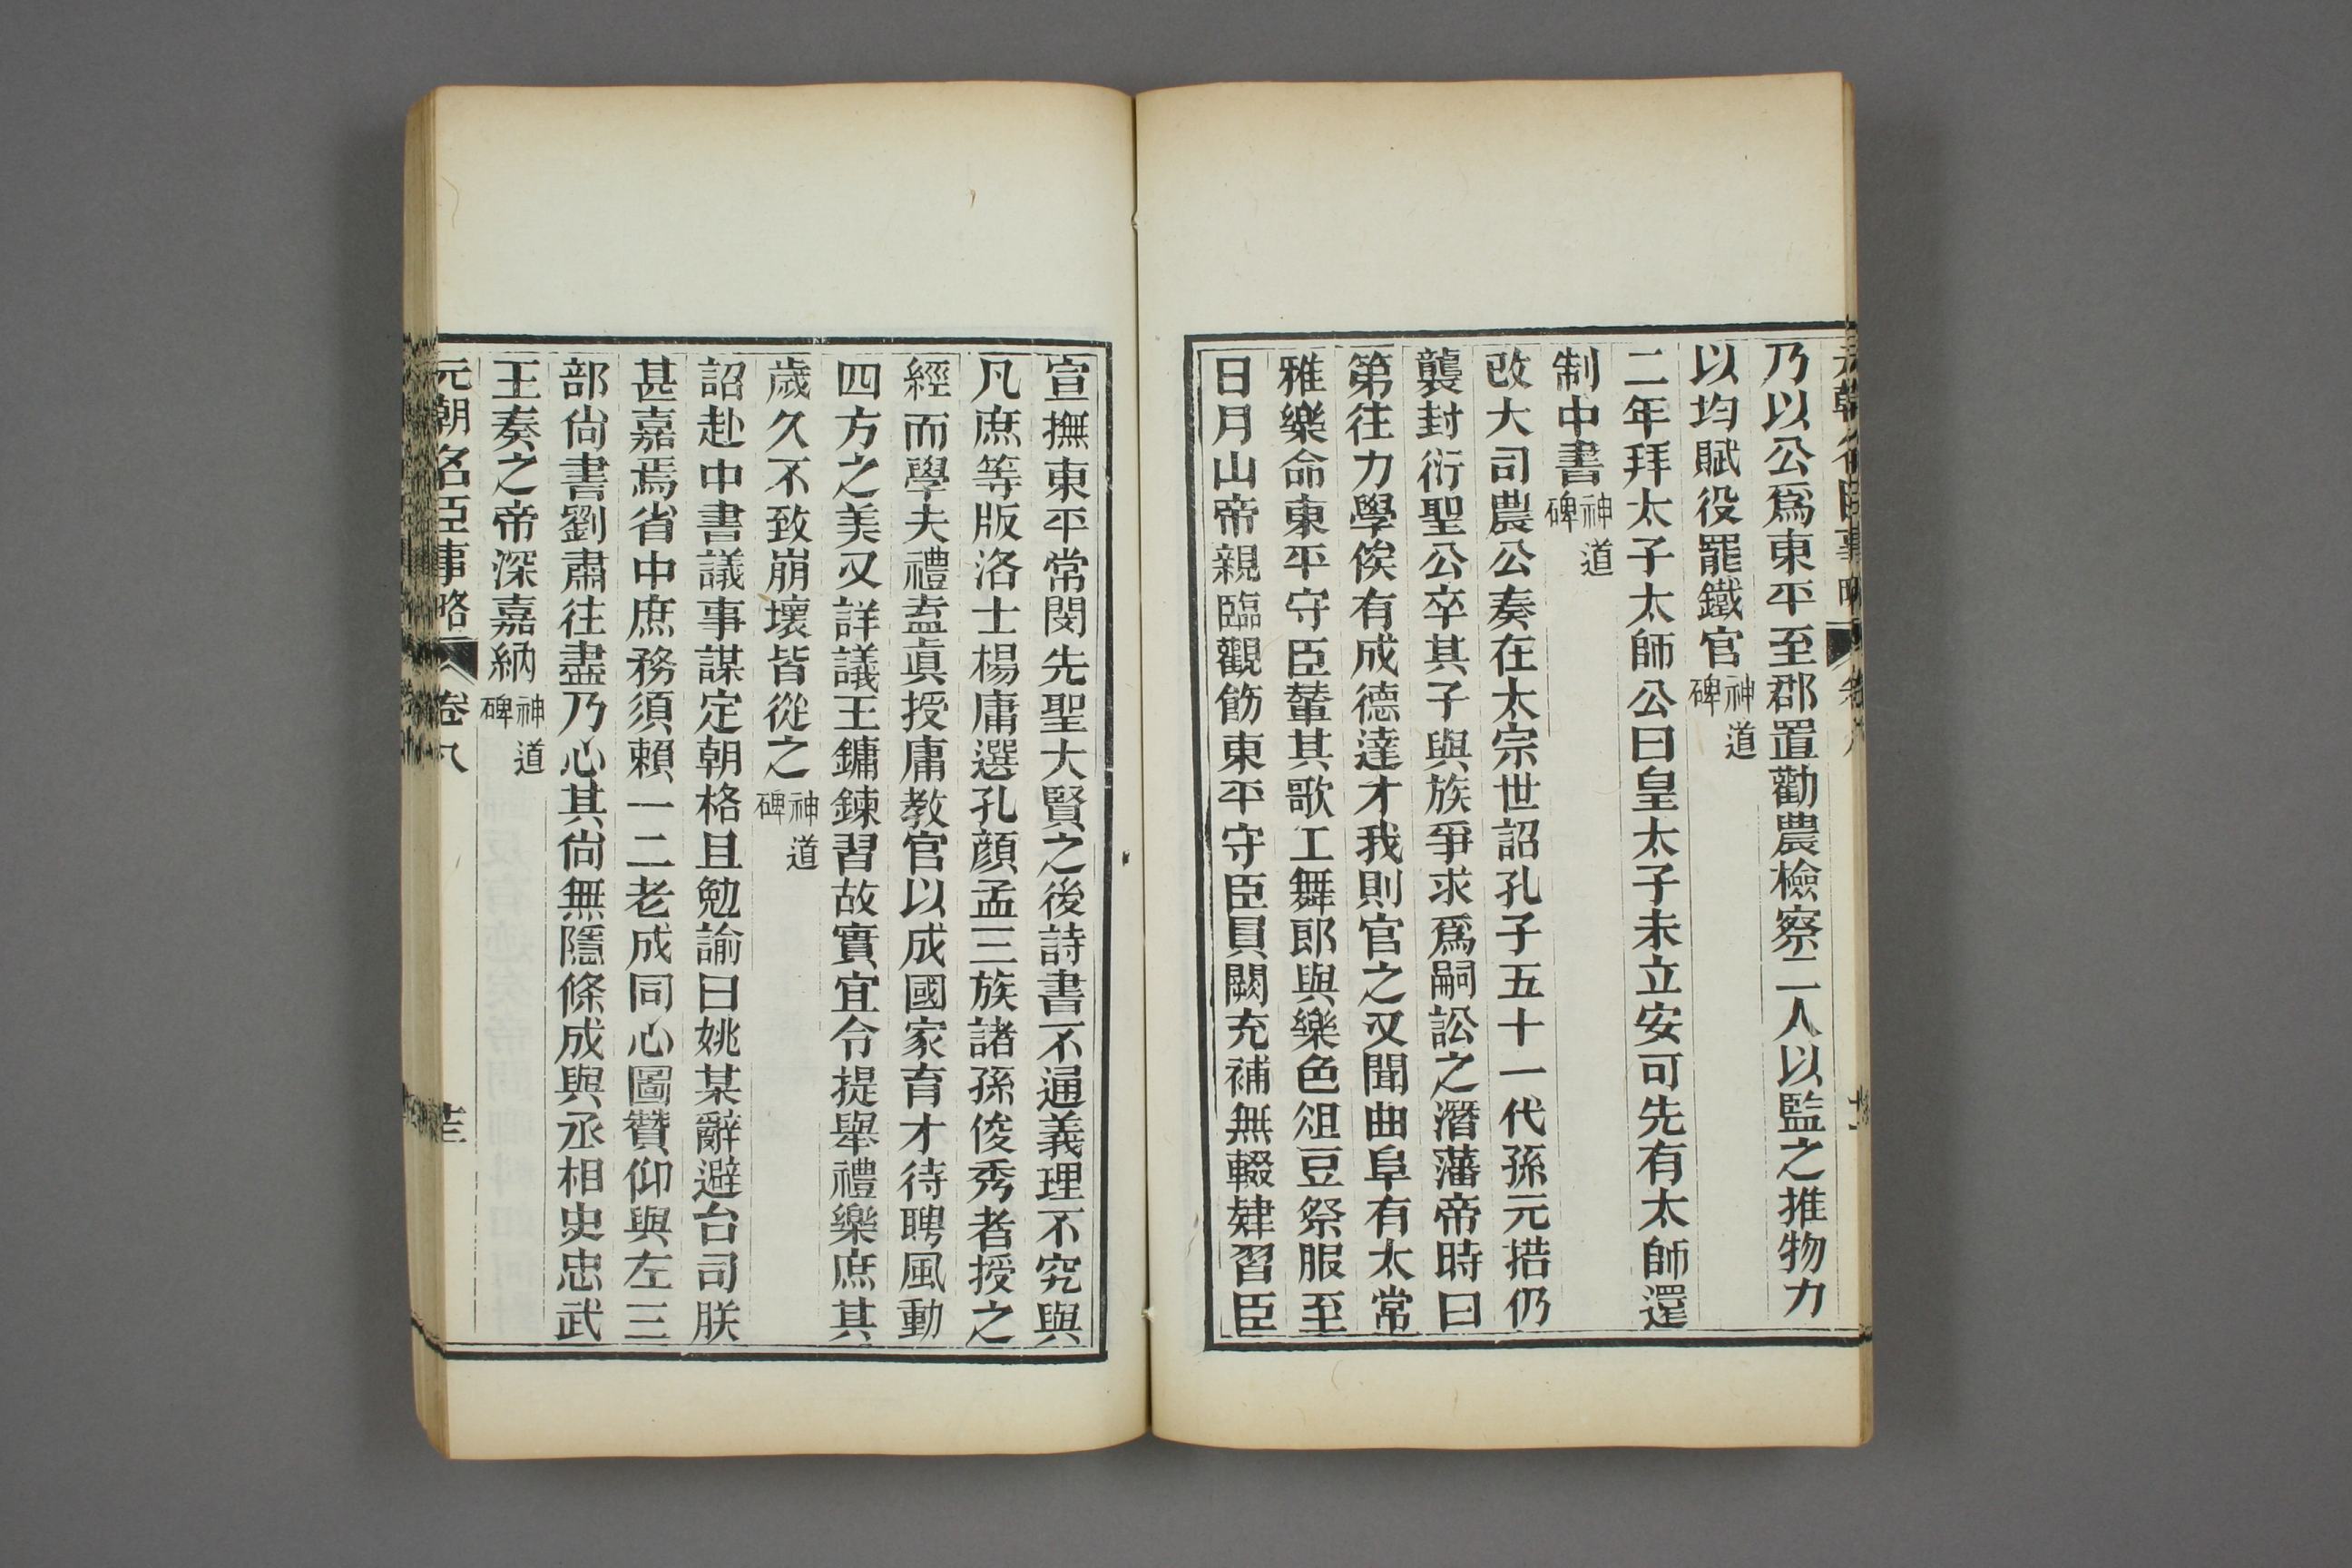 乃以公爲東平至郡置勸農檢察二人以監之推物力
以均賦役罷鐵官神道碑
二年拜太子太師公曰皇太子未立安可先有太師還
制中書神道碑
改大司農公奏在太宗世詔孔子五十一代孫元措仍
襲封衍聖公卒其子與族爭求爲嗣訟之潛藩帝時曰
第往力學俟有成德達才我則官之又聞曲阜有太常
雅樂命東平守臣輦其歌工舞郎與樂色俎豆祭服至
日月山帝親臨觀飭東平守臣員闕充補無輟肄習臣
宣撫東平常閔先聖大賢之後詩書不通義理不究與
凡庶等版洛士楊庸選孔顔孟三族諸孫俊秀者授之
經而學夫禮盍眞授庸教官以成國家育才待聘風動
四方之美又詳議王鏞鍊習故實宜令提舉禮樂庶其
歲久不致崩壞皆從之神道碑
詔赴中書議事謀定朝格且勉諭曰姚某辭避台司朕
甚嘉焉省中庶務須賴一二老成同心圖贊仰與左三
部尙書劉肅往盡乃心其尙無隱條成與丞相史忠武
王奏之帝深嘉納神道碑
元朝名臣事略 卷八